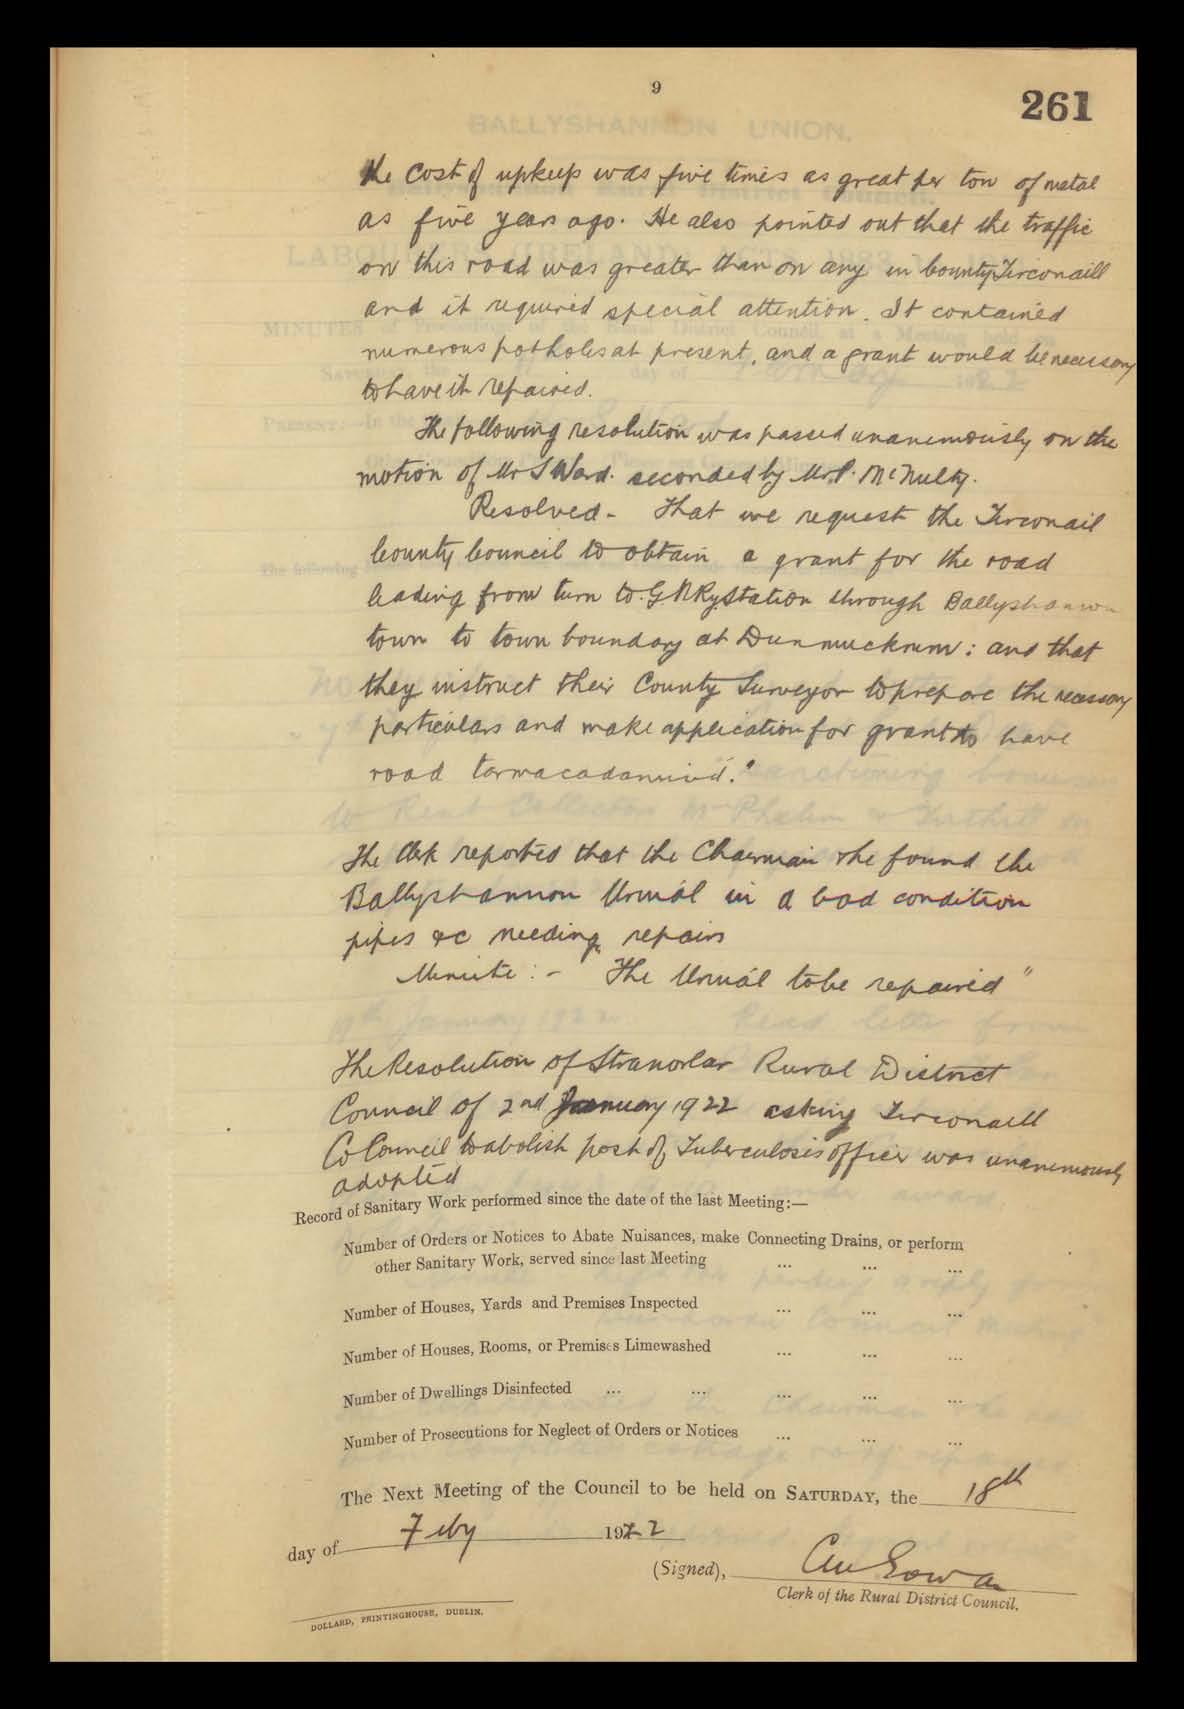 9
261
the cost of upkeep was five times as great per ton of metal
as five years ago. He also pointed out that the traffic
on this road was greater than on any in County Tirconaill
and it required special attention. It contained
numerous potholes at present, and a grant would be necessary
to have it repaired.
The following resolution was passed unanimously on the
motion of Mr S Ward. seconded by Mr P. McNulty.
Resolved - That we request the Tirconail
County Council to obtain a grant for the road
leading from turn to G.N Ry Station through Ballyshannon
town to town boundary at Dunmuckrum: and that
they instruct their County Surveyor to prepare the necessary
particulars and make application for grant to have
road tarmacadamised."
The Clerk reported that the Chairman & he found the
Ballyshannon Urinal in a bad condition
pipes &c needing repairs
Minute :- The Urinal to be repaired"
The Resolution of Stranorlar Rural District
Council of 2nd January 1922 asking Tirconaill
Co Council to abolish post of Tuberculosis officer was unanimously
adopted
Record of Sanitary Work performed since the date of the last Meeting:—
Number of Orders or Notices to Abate Nuisances, make Connecting Drains, or perform
other Sanitary Work, served since last Meeting ... ... ...
Number of Houses, Yards and Premises Inspected ... ... ...
Number of Houses, Rooms, or Premises Limewashed ... ... ...
Number of Dwellings Disinfected ... ... ... ... ...
Number of Prosecutions for Neglect of Orders or Notices ... ... ...
The Next Meeting of the Council to be held on SATURDAY, the 18th
day of Feby 1922
(Signed),
Clerk of the Rural District Council.
DOLLARD, PRINTINGHOUSE, DUBLIN.